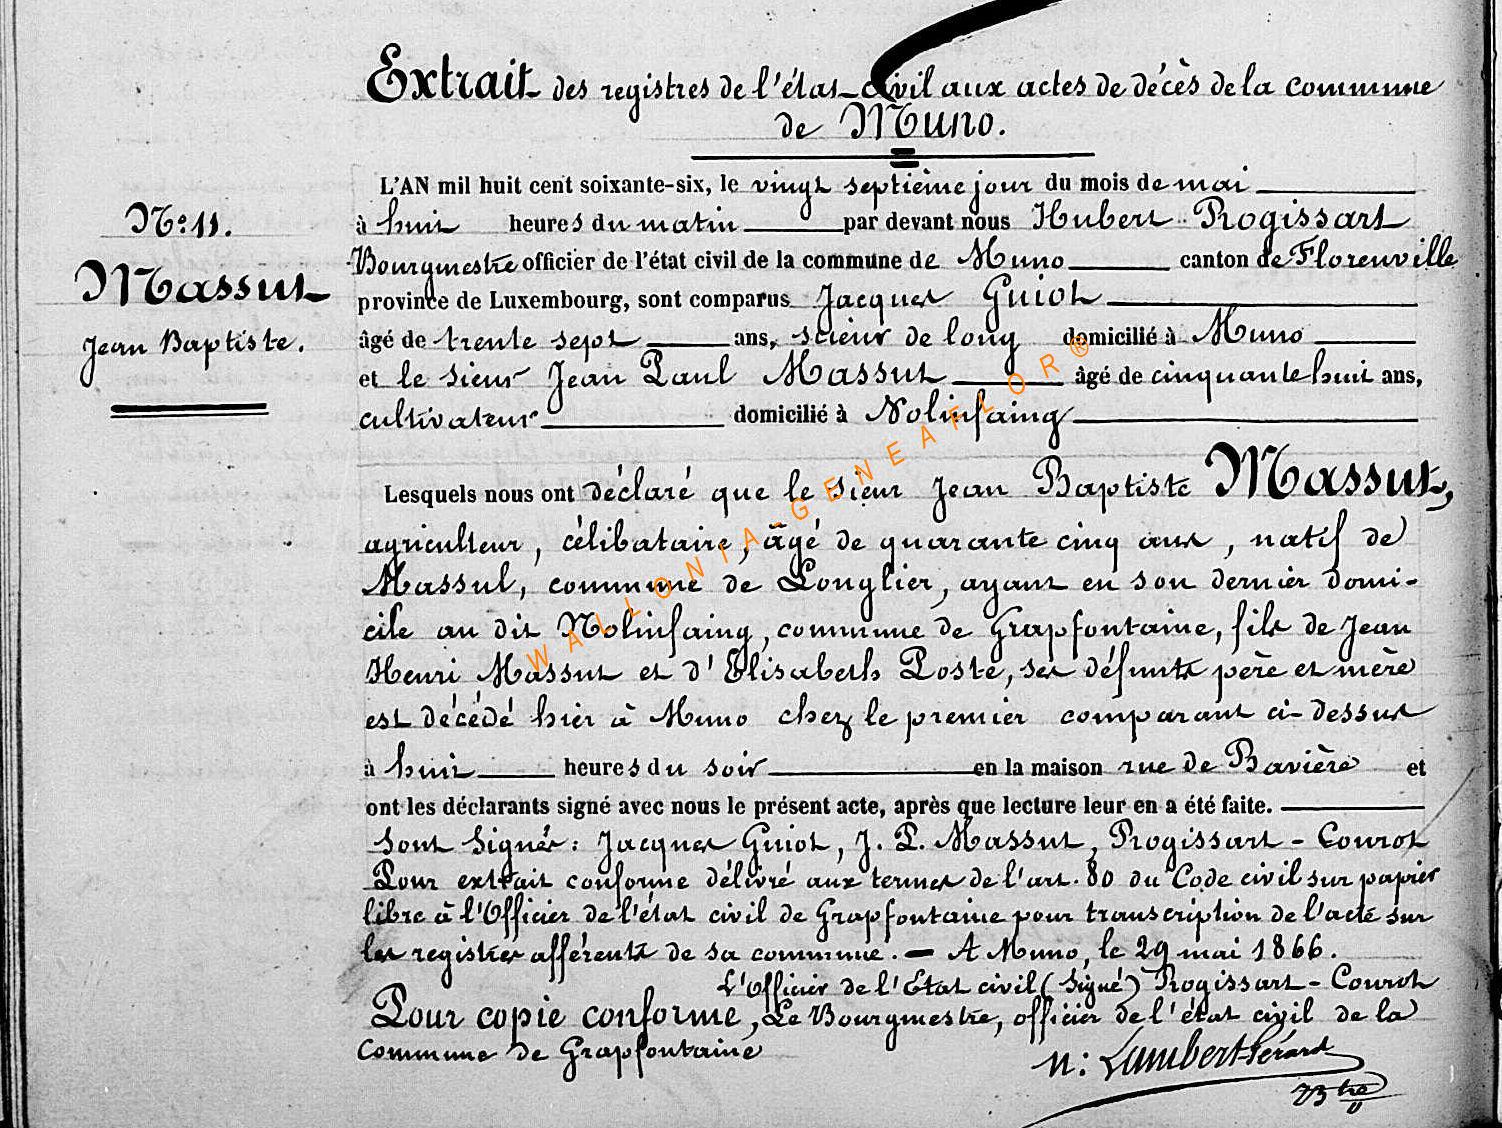 Extrait des registres de l'état-civil aux actes de décès de la commune
de Muno.
L'AN mil huit cent soixante-six, le vingt septième jour du mois de mai
N:o 11.
à huit heures du matin par devant nous Hubert Rogissart
Bourgmestre officier de l'état civil de la commune de Muno canton de Florenville
Massut
province de Luxembourg, sont comparus Jacques Guiot
Jean Baptiste.
âgé de trente sept ans, scieur de long domicilié à Muno
et le sieur Jean Paul Massut âgé de cinquante huit ans,
cultivateur domicilié à Nolinfaing
Lesquels nous ont déclaré que le sieur Jean Baptiste Massut,
agriculteur, célibataire, âgé de quarante cinq ans, natif de
Massul, commune de Longlier, ayant eu son dernier domi-
cile au dit Nolinfaing, commune de Grapfontaine, fils de Jean
Henri Massut et d'Elisabeth Poste, ses défunts père et mère
est décédé hier à Muno chez le premier comparant ci-dessus
à huit heures du soir en la maison rue de Bavière et
ont les déclarants signé avec nous le présent acte, après que lecture leur en a été faite.
Sont signés: Jacques Guiot, J. P. Massut, Rogissart-Courot
Pour extrait conforme délivré aux termes de l'art. 80 du Code civil sur papier
libre à l'Officier de l'état civil de Grapfontaine pour transcription de l'acte sur
les registres afférents de sa commune. — A Muno, le 29 mai 1866.
L'Officier de l'Etat civil (Signé) Rogissart-Courot
Pour copie conforme, Le Bourgmestre, officier de l'état civil de la
Commune de Grapfontaine
N: Lambert Gérard
Btre
WALLONIA-GENEAFLOR®